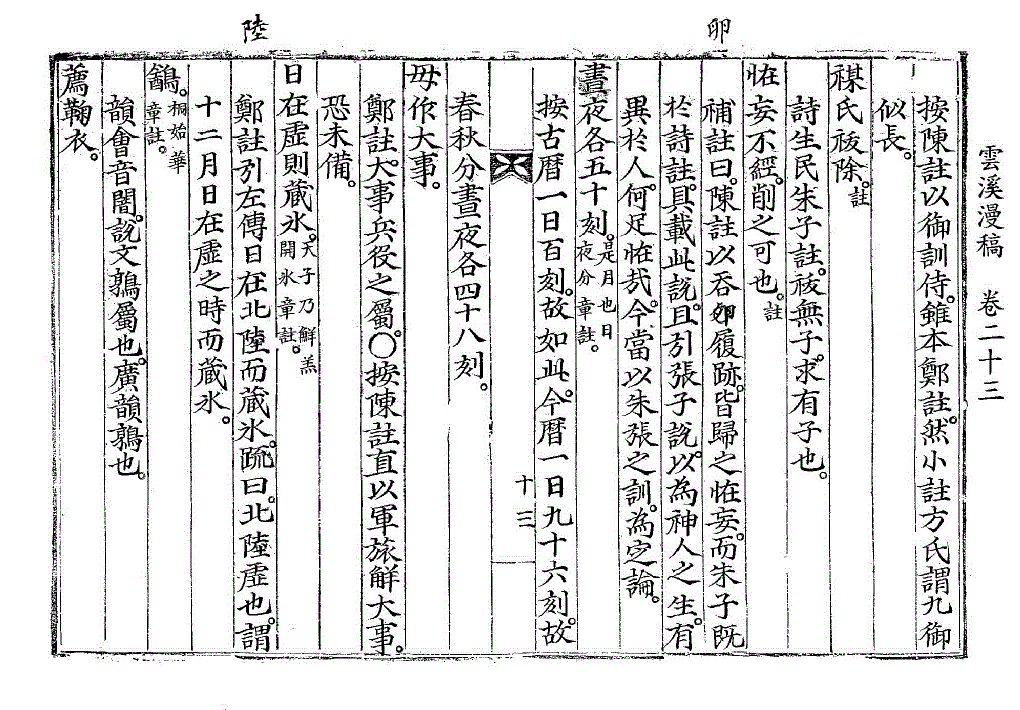 雲溪漫稿　卷二十三
卵
陸
按陳註以御訓侍。雖本鄭註。然小註方氏謂九御
似長。
禖氏祓除。註
詩生民朱子註。祓無子。求有子也。
恠妄不經。削之可也。註
補註曰。陳註以吞卵履跡。皆歸之恠妄。而朱子既
於詩註。具載此說。且引張子說。以為神人之生。有
異於人。何足恠哉。今當以朱張之訓。為定論。
晝夜各五十刻。是月也日夜分章註。
按古曆一日百刻。故如此。今曆一日九十六刻。故
十三
春秋分晝夜各四十八刻。
毋作大事。
鄭註。大事兵役之屬。〇按陳註直以軍旅解大事。
恐未備。
日在虛則蔵氷。天子乃鮮羔開氷章註。
鄭註引左傳日在北陸而蔵氷。疏曰。北陸虛也。謂
十二月日在虛之時而蔵氷。
鷭。桐始華章註。
韻會音闇。說文鶉屬也。廣韻鶉也。
薦鞠衣。